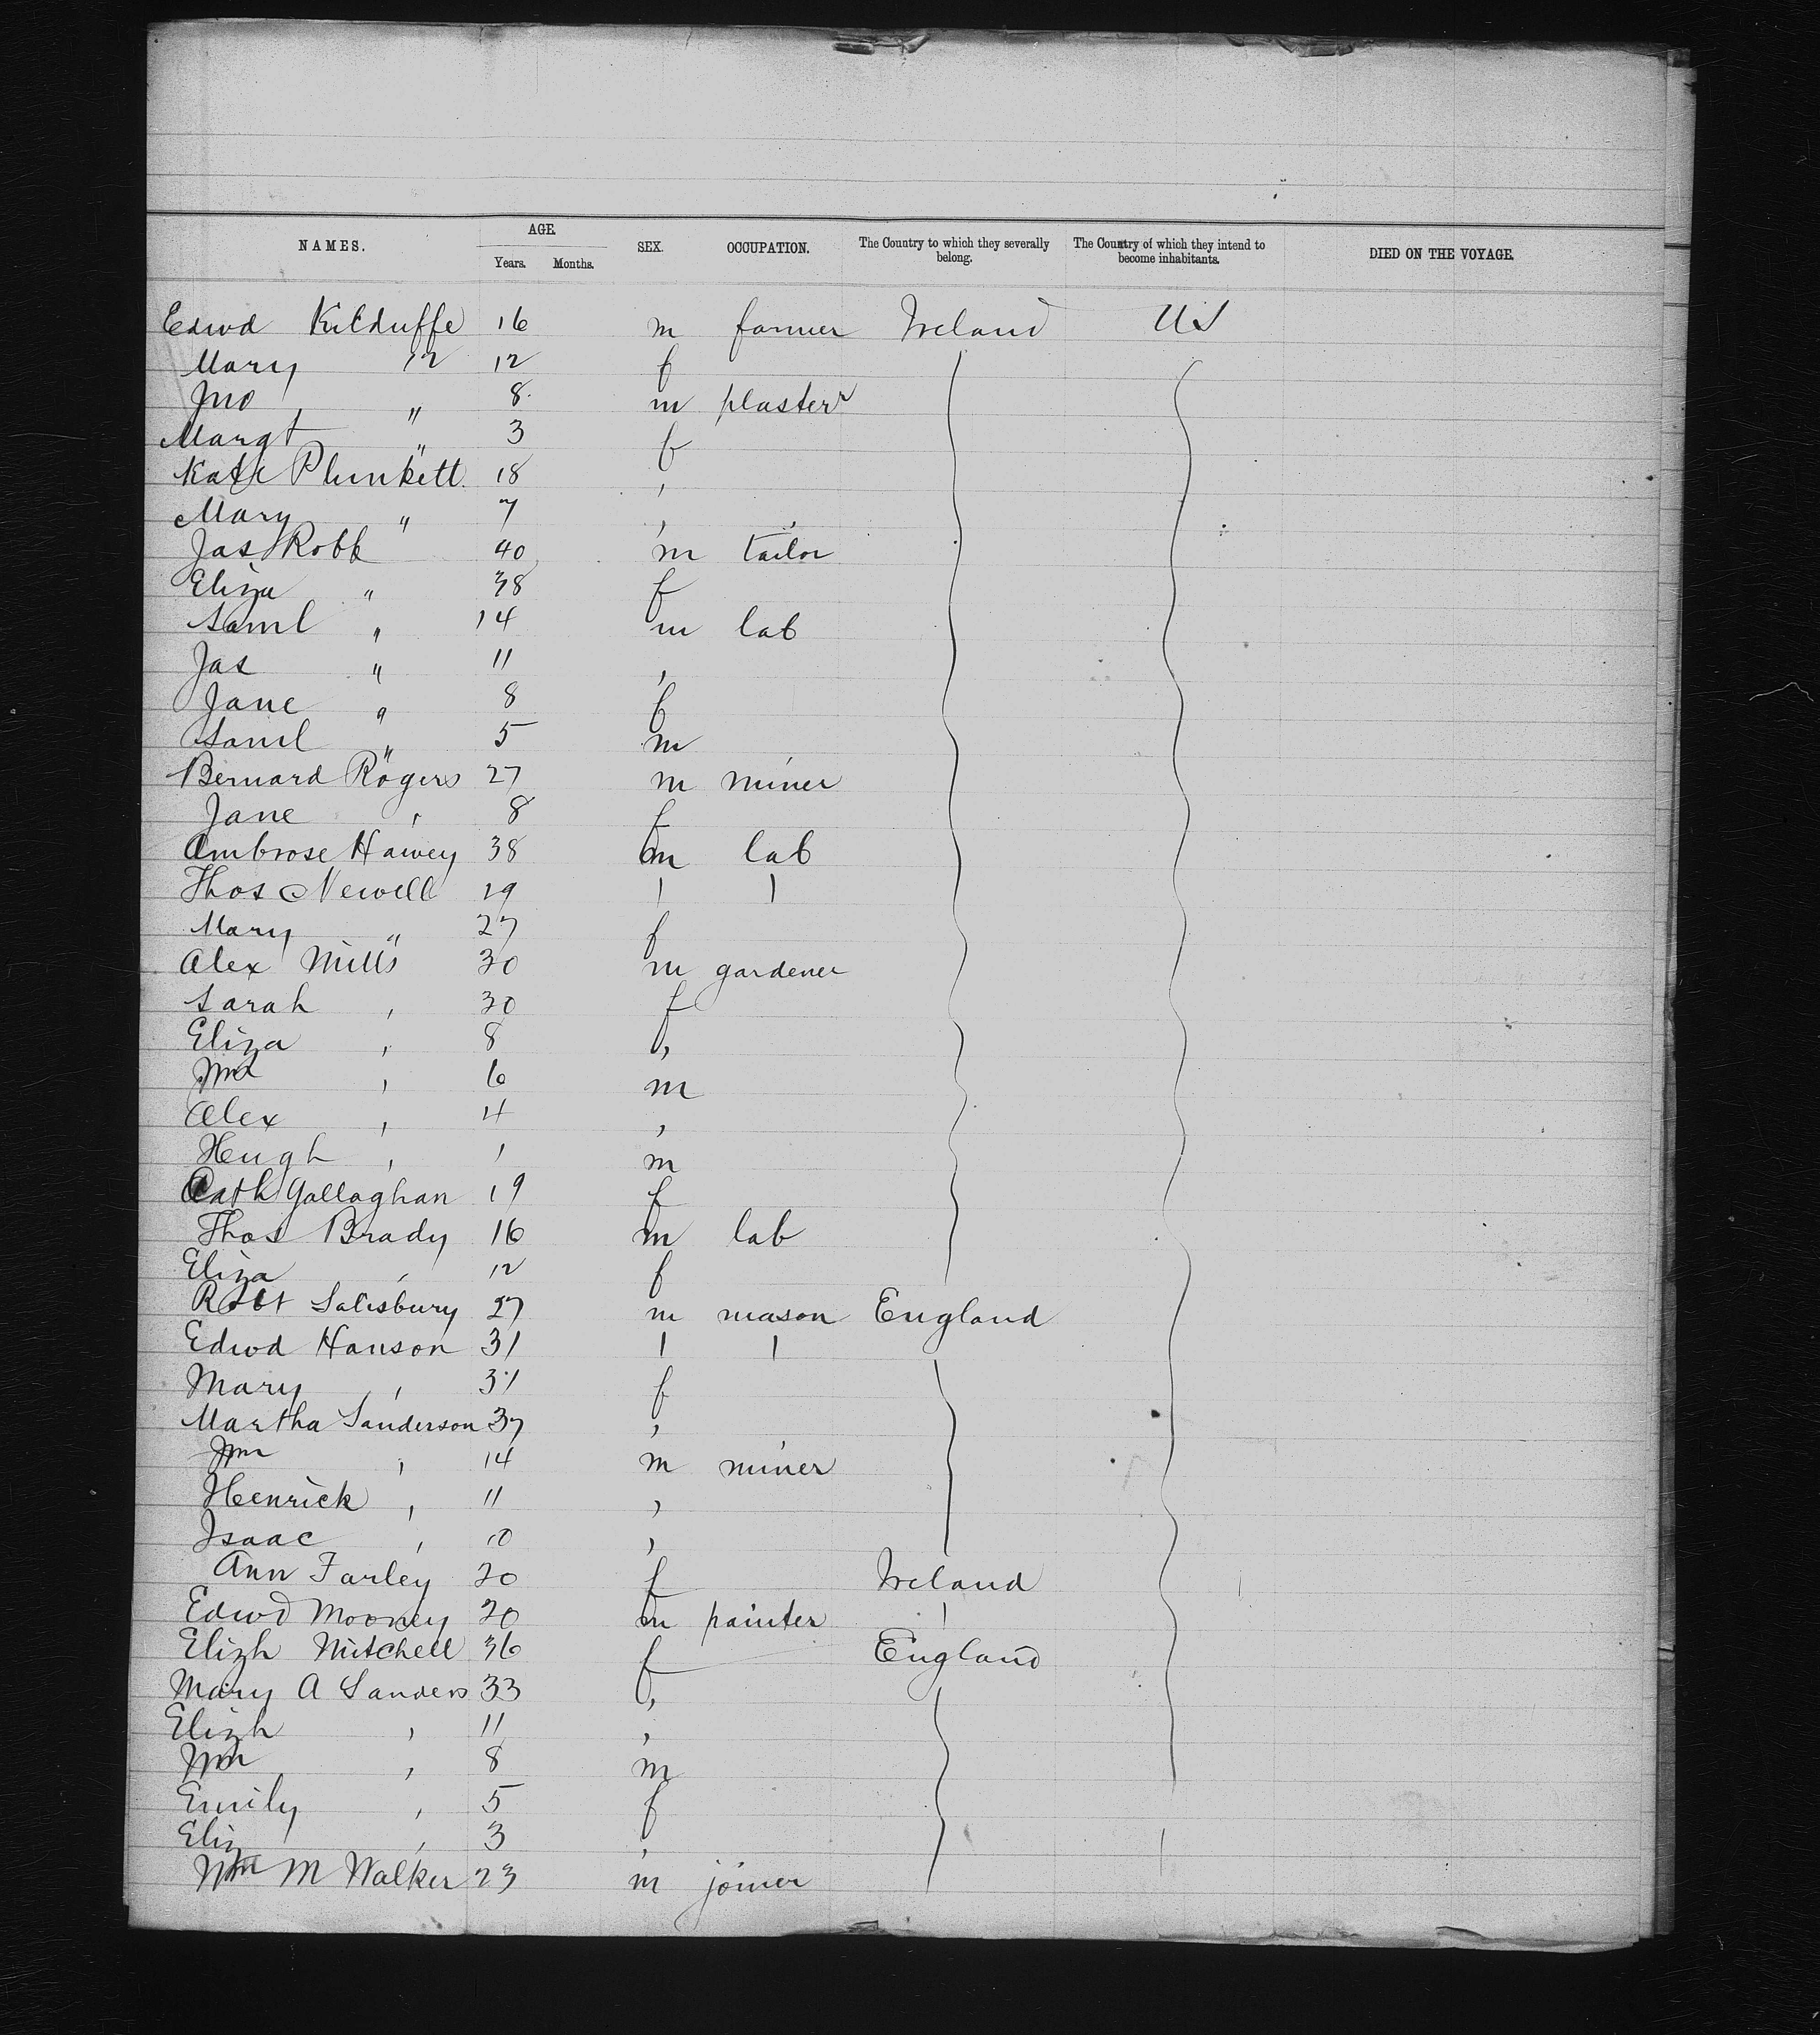 NAMES. AGE. SEX. OCCUPATION. The Country to which they severally belong. The Country of which they intend to become inhabitants. DIED ON THE VOYAGE.
Years. Months.
Edwd Kilduffe 16 m farmer Ireland US
Mary " 12 f
Jno " 8 m plasterr
Margt " 3 f
Kate Plunkett 18 ,
Mary " 7 ,
Jas Robb 40 m tailor
Eliza " 38 f
Saml " 14 m lab
Jas " 11 ,
Jane " 8 f
Saml " 5 m
Bernard Rogers 27 m miner
Jane , 8 f
Ambrose Hawey 38 m lab
Thos Newell 29 | |
Mary " 27 f
Alex Mills 30 m gardener
Sarah , 30 f
Eliza , 8 ,
, 6 m
Alex , 4 ,
Hugh , 1 m
Cath Gallaghan 19 f
Thos Brady 16 m lab
Eliza , 12 f
Robt Salisbury 27 m mason England
Edwd Hanson 31 | |
Mary , 31 f
Martha Sanderson 37 ,
, 14 m miner
Henrick , 11 ,
Isaac , 10 ,
Ann Farley 20 f Ireland
Edwd Mooney 20 m painter |
Elizh Mitchell 36 f England
Mary A Sanders 33 ,
Elizh , 11 ,
Wm , 8 m
Emily , 5 f
Eliz , 3 ,
Wm M Walker 23 m joiner